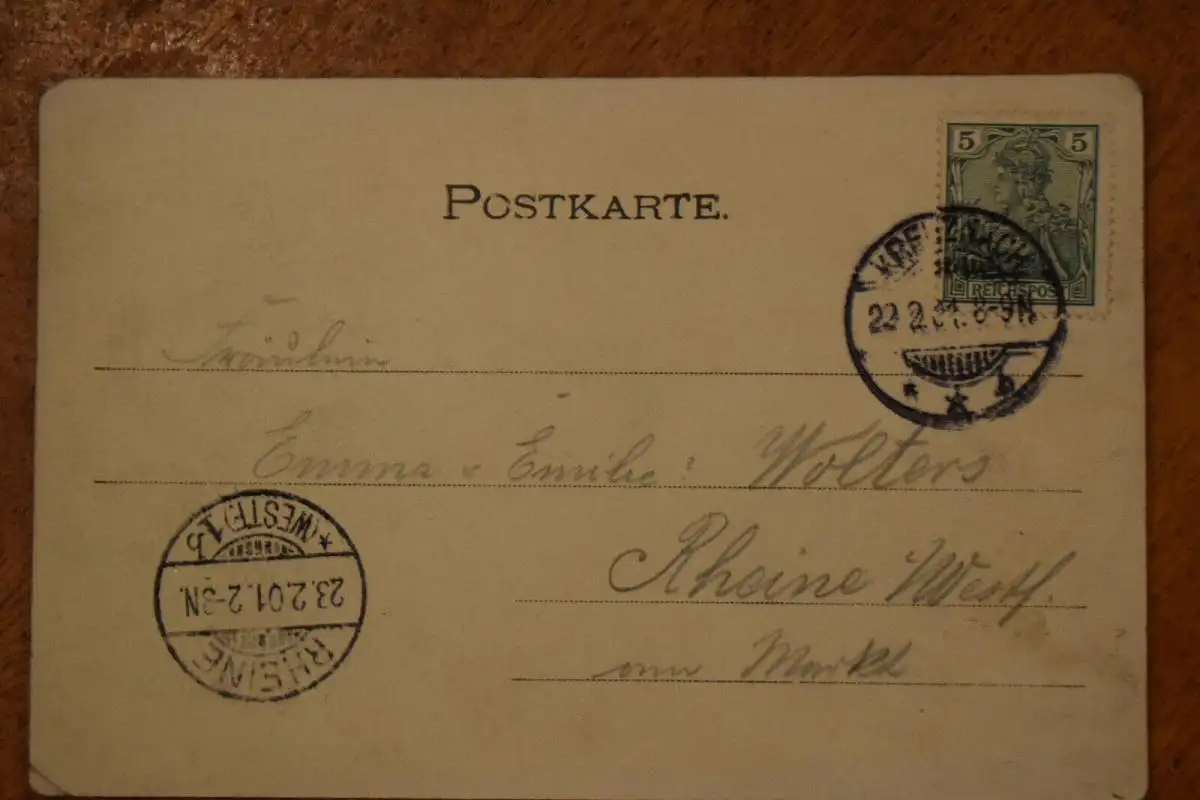 5 5
POSTKARTE.
REICHSPOST
KREUZNACH
22.2.01. 8-9N
* b
Fräulein
Emma u Emilie Wolters
Rheine Westf.
am Markt
RHEINE
23.2.01. 2-3N.
*(WESTF.)1b